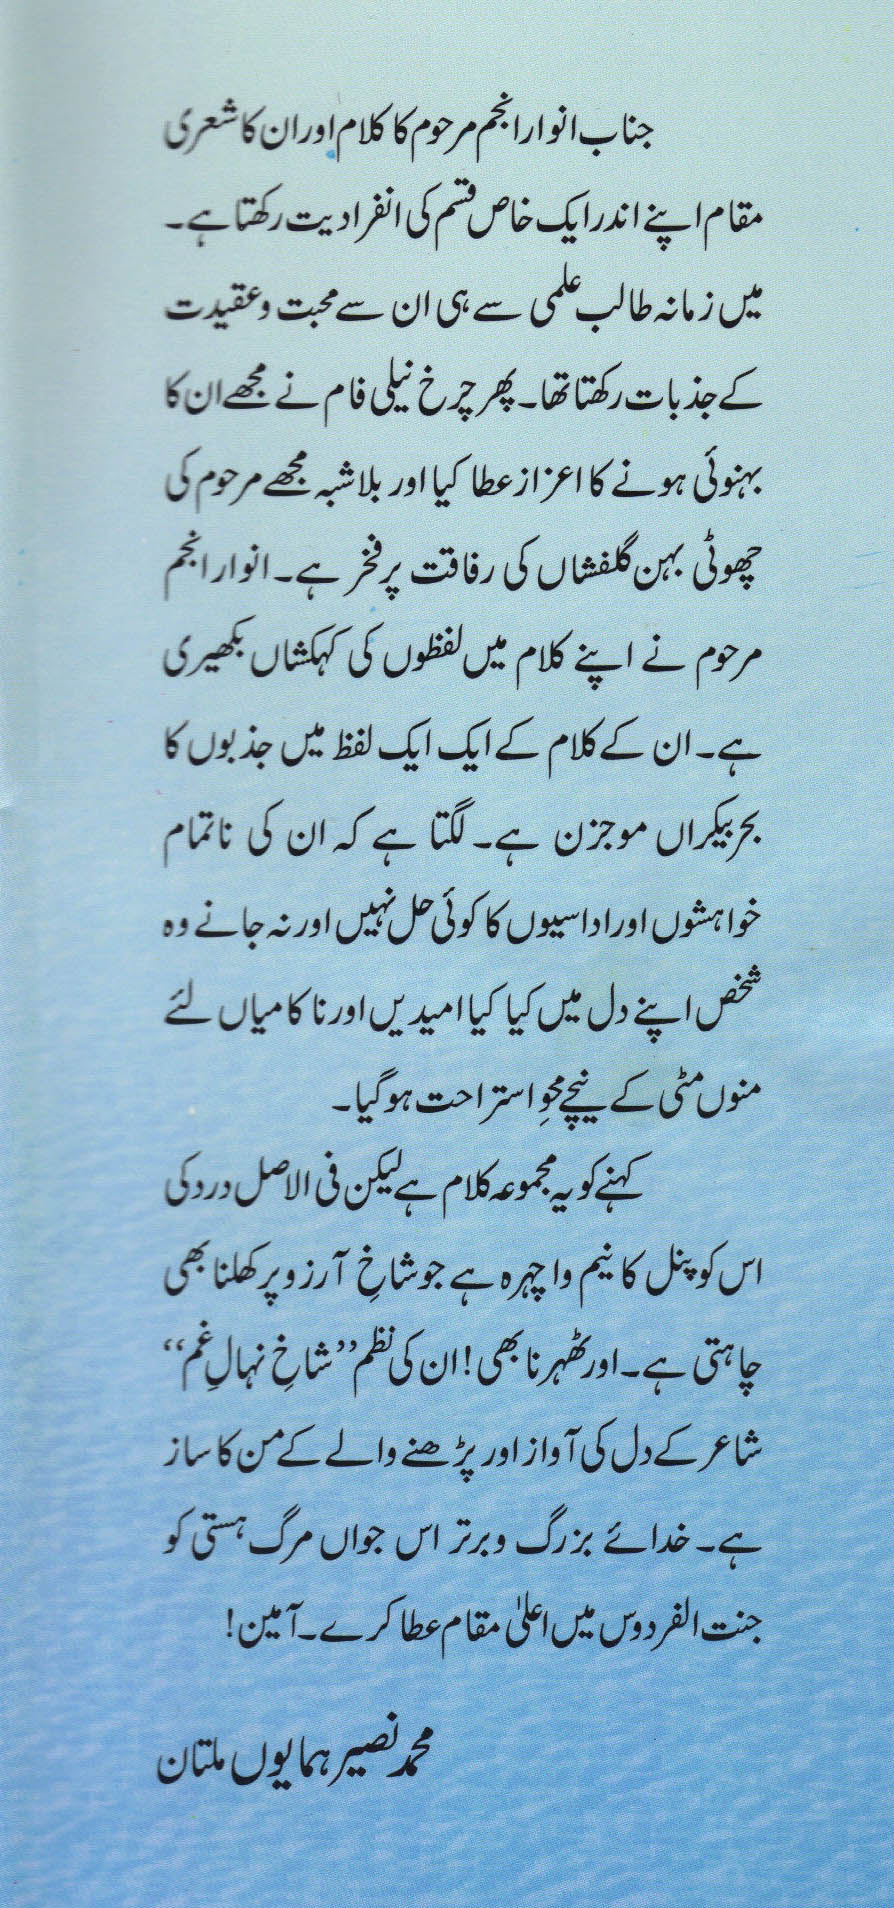 جناب انوار انجم مرحوم کا کلام اور ان کا شعری
مقام اپنے اندر ایک خاص قسم کی انفرادیت رکھتا ہے۔
میں زمانہ طالب علمی سے ہی ان سے محبت و عقیدت
کے جذبات رکھتا تھا۔ پھر چرخ نیلی فام نے مجھے ان کا
بہنوئی ہونے کا اعزاز عطا کیا اور بلاشبہ مجھے مرحوم کی
چھوٹی بہن گلفشاں کی رفاقت پر فخر ہے۔ انوار انجم
مرحوم نے اپنے کلام میں لفظوں کی کہکشاں بکھیری
ہے۔ ان کے کلام کے ایک ایک لفظ میں جذبوں کا
بحر بیکراں موجزن ہے۔ لگتا ہے کہ ان کی ناتمام
خواہشوں اور اداسیوں کا کوئی حل نہیں اور نہ جانے وہ
شخص اپنے دل میں کیا کیا امیدیں اور ناکامیاں لئے
منوں مٹی کے نیچے محوِ استراحت ہو گیا۔
کہنے کو یہ مجموعہ کلام ہے لیکن فی الاصل درد کی
اس کونپل کا نیم وا چہرہ ہے جو شاخِ آرزو پر کھلنا بھی
چاہتی ہے۔ اور ٹھہرنا بھی! ان کی نظم ”شاخِ نہالِ غم“
شاعر کے دل کی آواز اور پڑھنے والے کے من کا ساز
ہے۔ خدائے بزرگ و برتر اس جواں مرگ ہستی کو
جنت الفردوس میں اعلیٰ مقام عطا کرے۔ آمین!
محمد نصیر ہمایوں ملتان